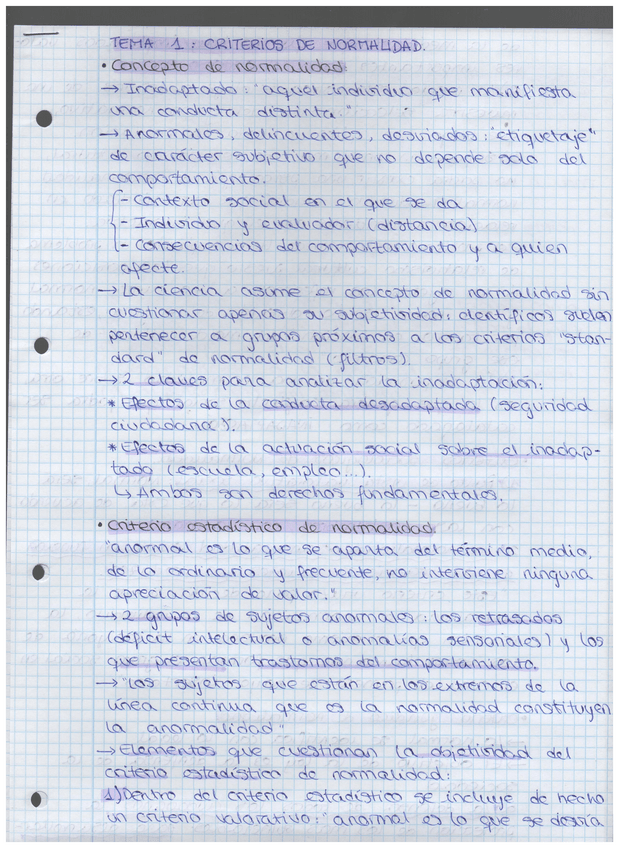 TEMA 1: CRITERIOS DE NORMALIDAD.
• Concepto de normalidad:
→ Inadaptado: "aquel individuo que manifiesta
una conducta distinta."
→ Anormales, delincuentes, desviados: "etiquetaje"
de carácter subjetivo que no depende solo del
comportamiento.
- Contexto social en el que se da
- Individuo y evaluador (distancia)
- Consecuencias del comportamiento y a quien
afecte.
→ La ciencia asume el concepto de normalidad sin
cuestionar apenas su subjetividad: científicos suelen
pertenecer a grupos próximos a los criterios "stan-
dard" de normalidad (filtros).
→ 2 claves para analizar la inadaptación:
* Efectos de la conducta desadaptada (seguridad
ciudadana).
* Efectos de la actuación social sobre el inadap-
tado (escuela, empleo...).
↳ Ambos son derechos fundamentales.
• Criterio estadístico de normalidad
"anormal es lo que se aparta del término medio,
de lo ordinario y frecuente, no interviene ninguna
apreciación de valor."
→ 2 grupos de sujetos anormales: los retrasados
(déficit intelectual o anomalías sensoriales) y los
que presentan trastornos del comportamiento.
→ "Los sujetos que están en los extremos de la
línea continua que es la normalidad constituyen
la anormalidad"
→ Elementos que cuestionan la objetividad del
criterio estadístico de normalidad:
1) Dentro del criterio estadístico se incluye de hecho
un criterio valorativo: "anormal es lo que se desvía